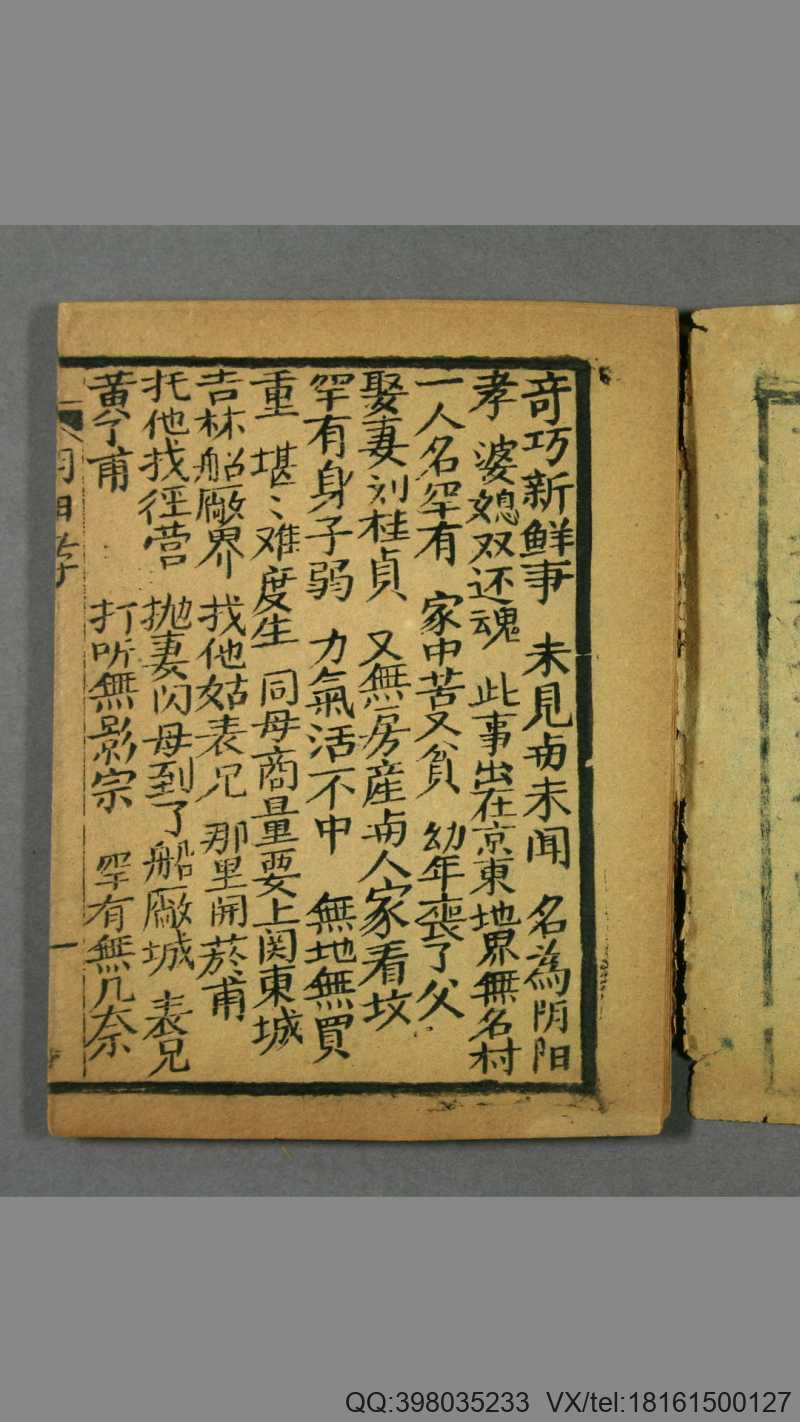 奇巧新鲜事 未見与未闻 名為阴阳
孝 婆媳双还魂 此事出在京東地界無名村
一人名罕有 家中苦又貧 幼年喪了父
娶妻刘桂貞 又無房産与人家看坟
罕有身子弱 力氣活不中 無地無買
重 堪〻难度生 同母商量要上関東城
吉林船厰界 找他姑表兄 那里開菸甫
托他找徑营 抛妻闪母到了船厰城 表兄
黃了甫 打听無影宗 罕有無几奈
一
QQ:398035233 VX/tel:18161500127